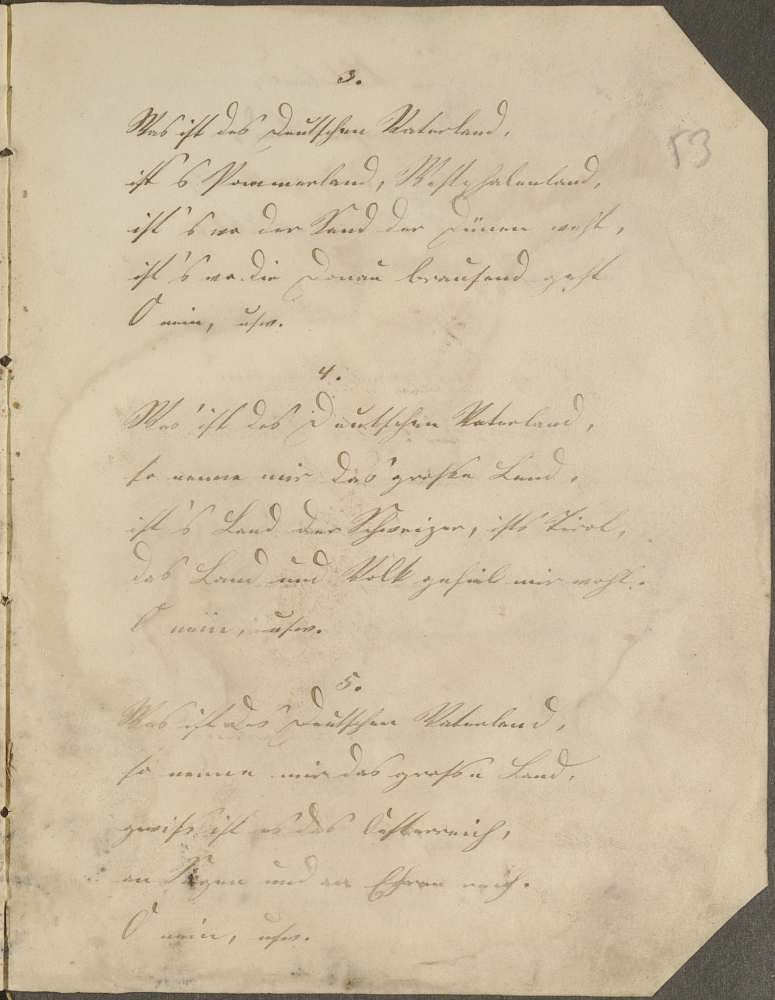 3.
53
Was ist des Deutschen Vaterland,
ist's Pommerland, Westphalenland,
ist's wo der Sand der Dünen weht,
ist's wo die Donau brausend geht
O nein, usw.
4.
Was ist des Deutschen Vaterland,
so nenne mir das große Land,
ist's Land der Schweizer, ists Tirol,
das Land und Volk gefiel mir wohl.
O nein, usw.
5.
Was ist des Deutschen Vaterland,
so nenne mir das große Land,
gewiß ist es das Oesterreich,
an Siegen und an Ehren reich.
O nein, usw.